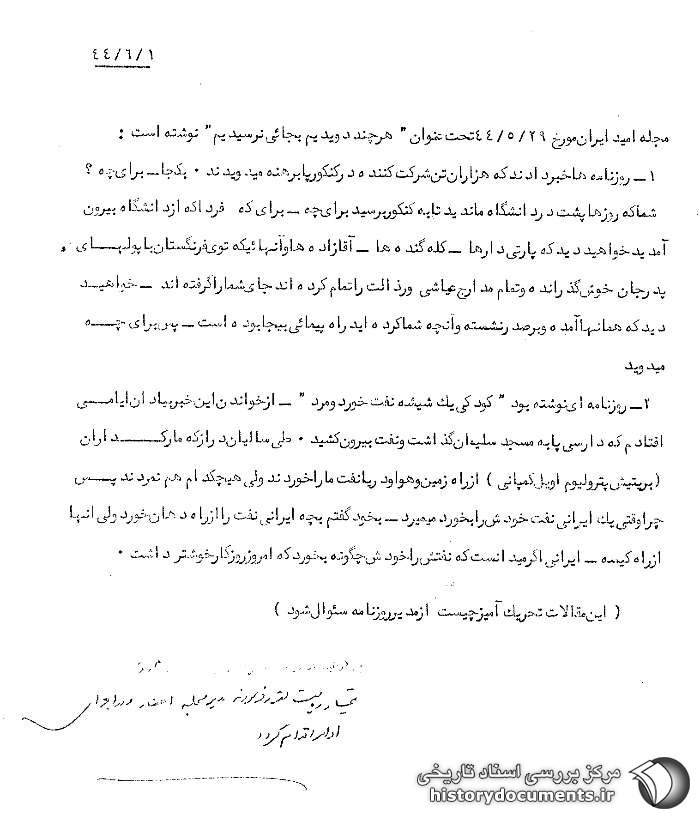 ٤٤/٦/١
مجله امید ایران مورخ ٤٤/٥/٢٩ تحت عنوان " هرچند دویدیم بجائی نرسیدیم" نوشته است :
١ــ روزنامه ها خبر دادند که هزاران تن شرکت کننده در کنکور پابرهنه میدویدند ٠ بکجا ــ برای چه ؟
شما که روزها پشت در دانشگاه ماندید تا به کنکور برسید برای چه ــ برای که فردا که از دانشگاه بیرون
آمدید خواهید دید که پارتی دارها ــ کله گنده ها ــ آقازاده ها و آنهائیکه توی فرنگستان با پولهــای
پدرجان خوش گذرانده و تمام مدارج عیاشی ورذالت را تمام کرده اند جای شما را گرفته اند ــ خواهیــد
دید که همانها آمده و برصدر نشسته و آنچه شما کرده اید راه پیمائی بیجا بوده است ــ پس برای چــه
میدوید
٢ــ روزنامه ای نوشته بود " کودکی یك شیشه نفت خورد و مرد " ــ از خواندن این خبر بیاد آن ایامــی
افتادم که دارسی پا به مسجد سلیمان گذاشت و نفت بیرون کشید ٠ طی سالیان دراز که مارکــداران
(بریتیش پترولیوم اویل کمپانی ) از راه زمین و هوا و دریا نفت ما را خوردند ولی هیچکدام هم نمردند پــس
چرا وقتی یك ایرانی نفت خودش را بخورد میمیرد ــ بخود گفتم بچه ایرانی نفت را از راه دهان خورد ولی آنها
از راه کیسه ــ ایرانی اگر میدانست که نفتش را خودش چگونه بخورد که امروز روزگار خوشتر داشت ٠
( این مقالات تحریك آمیز چیست از مدیر روزنامه سئوال شود )
مدیر مجله احضار
اقدام گردد
مرکز بررسی اسناد تاریخی
historydocuments.ir